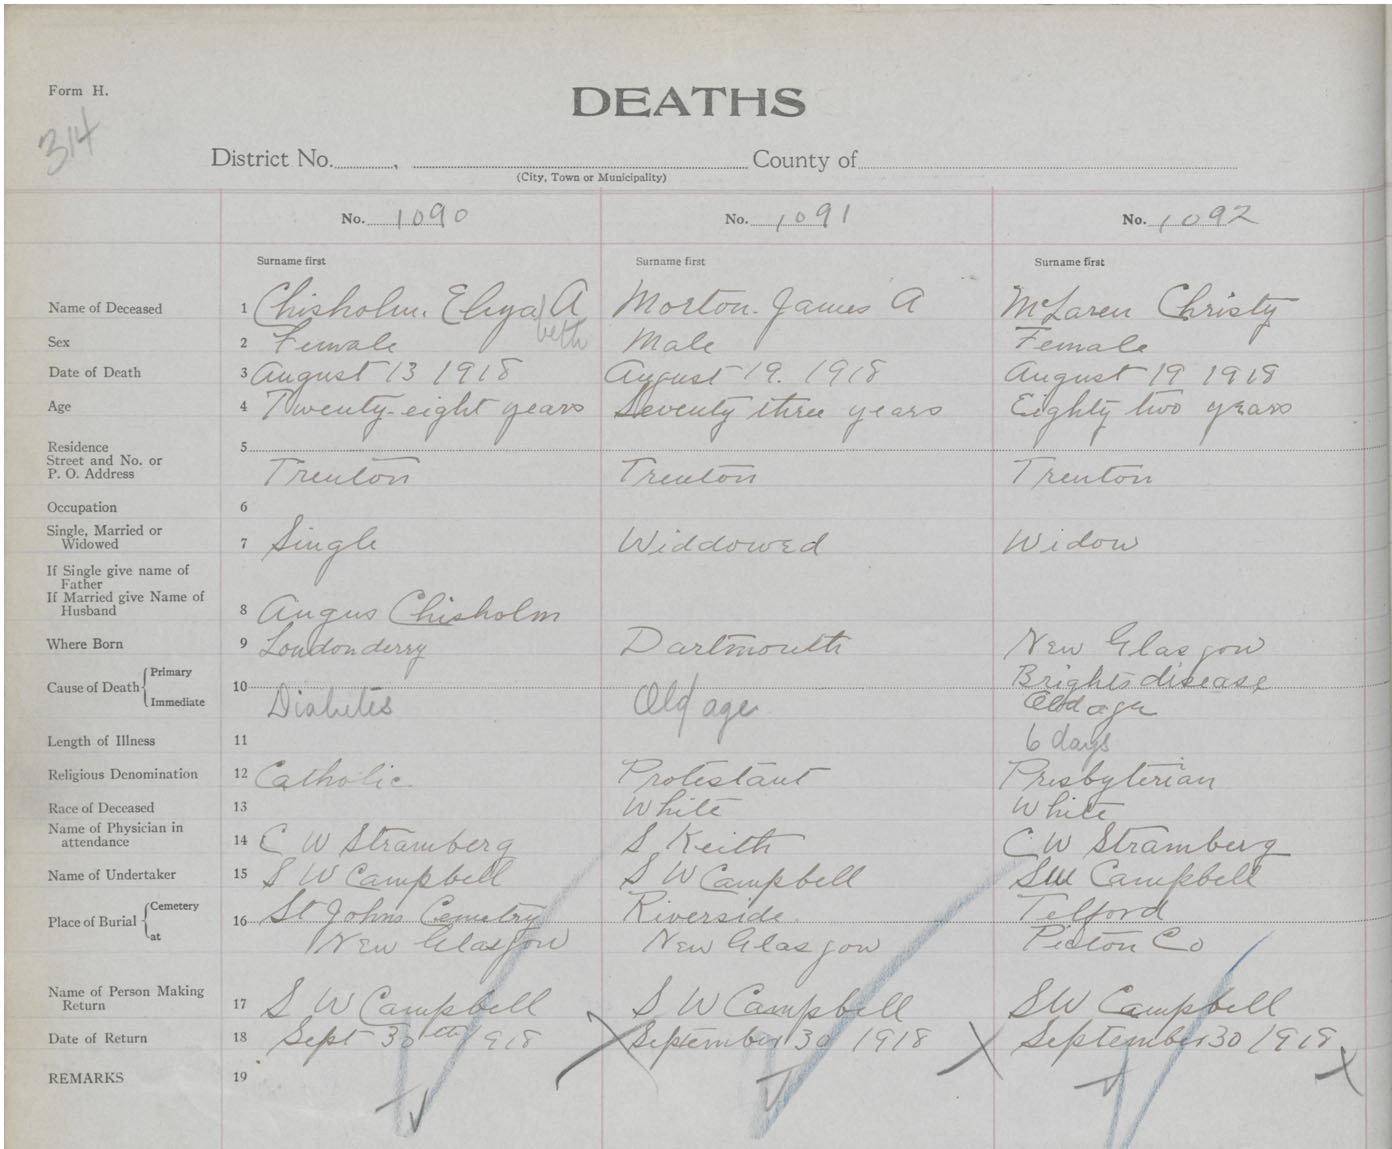 Form H.
DEATHS
314
District No. , County of
(City, Town or Municipality)
No. 1090 No. 1091 No. 1092
Surname first Surname first Surname first
Name of Deceased 1 Chisholm. Eliza A Morton. James A McLaren Christy
beth
Sex 2 Female Male Female
Date of Death 3 August 13 1918 August 19. 1918 August 19 1918
Age 4 Twenty-eight years Seventy three years Eighty two years
Residence 5
Street and No. or
P. O. Address Trenton Trenton Trenton
Occupation 6
Single, Married or
Widowed 7 Single Widdowed Widow
If Single give name of
Father
If Married give Name of
Husband 8 Angus Chisholm
Where Born 9 Londonderry Dartmouth New Glasgow
Cause of Death Primary 10 Brights disease
Immediate Diabetes Old age Old age
Length of Illness 11 6 days
Religious Denomination 12 Catholic Protestant Presbyterian
Race of Deceased 13 White White
Name of Physician in
attendance 14 C W Stramberg S Keith C W Stramberg
Name of Undertaker 15 S W Campbell S W Campbell SW Campbell
Place of Burial Cemetery 16 St Johns Cemetry Riverside Telford
at New Glasgow New Glasgow Pictou Co
Name of Person Making
Return 17 S W Campbell S W Campbell SW Campbell
Date of Return 18 Sept 30th 1918 September 30 1918 September 30 1918
REMARKS 19